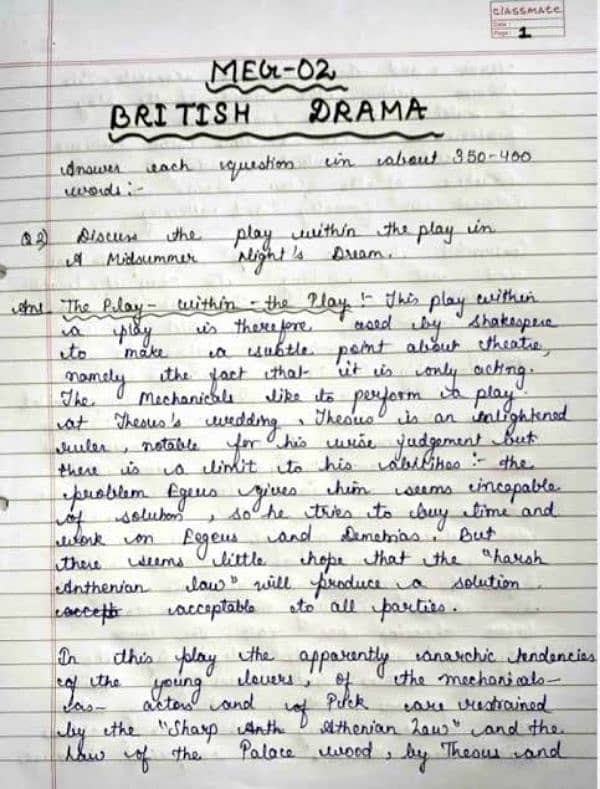 classmate
Date
Page 1
MEG-02
BRITISH DRAMA
Answer each question in about 350-400
words :-
Q2) Discuss the play within the play in
A Midsummer Night's Dream.
Ans. The Play-within-the Play :- This play within
a play is therefore used by Shakespere
to make a subtle point about theatre,
namely the fact that it is only acting.
The Mechanicals like to perform a play
at Theseus's wedding. Theseus is an enlightened
ruler, notable for his wise judgement but
there is a limit to his abilities :- the
problem Egeus gives him seems incapable
of solution, so he tries to buy time and
work on Eogeus and Demetrias. But
there seems little hope that the "harsh
Anthenian law" will produce a solution
accept acceptable to all parties.
In this play the apparently anarchic tendencies
of the young lovers, of the mechanicals-
as- actors and of Puck are restrained
by the "Sharp Anth Athenian Law" and the
law of the Palace wood, by Theseus and